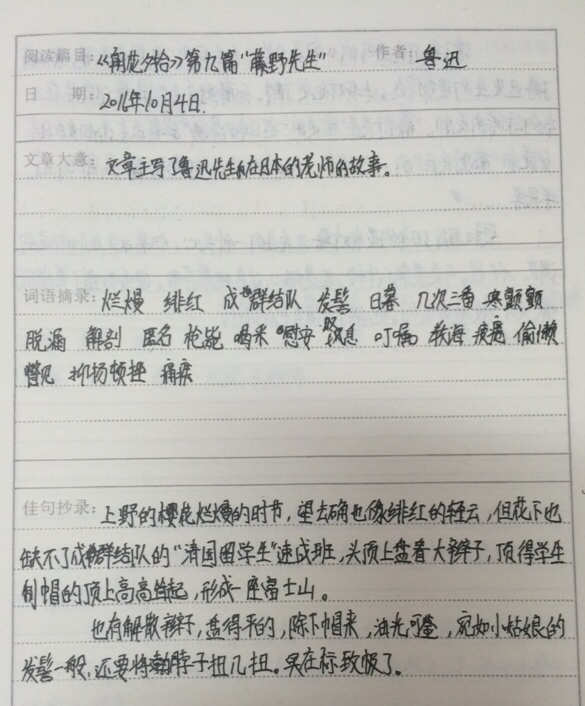 阅读篇目：《朝花夕拾》第九篇“藤野先生” 作者：鲁迅
日 期：2016年10月4日.
文章大意：文章主写了鲁迅先生的在日本的老师的故事。
词语摘录：烂熳 绯红 成群结队 发髻 日暮 几次三番 寒颤颤
脱漏 解剖 匿名 枪毙 喝采 慰安 叹息 叮嘱 教诲 疾病 偷懒
瞥见 抑扬顿挫 痛疾
佳句抄录：上野的樱花烂熳的时节，望去确也像绯红的轻云，但花下也
缺不了成群结队的“清国留学生”速成班，头顶上盘着大辫子，顶得学生
制帽的顶上高高耸起，形成一座富士山。
也有解散辫子，盘得平的，除下帽来，油光可鉴，宛如小姑娘的
发髻一般，还要将脖子扭几扭。实在标致极了。